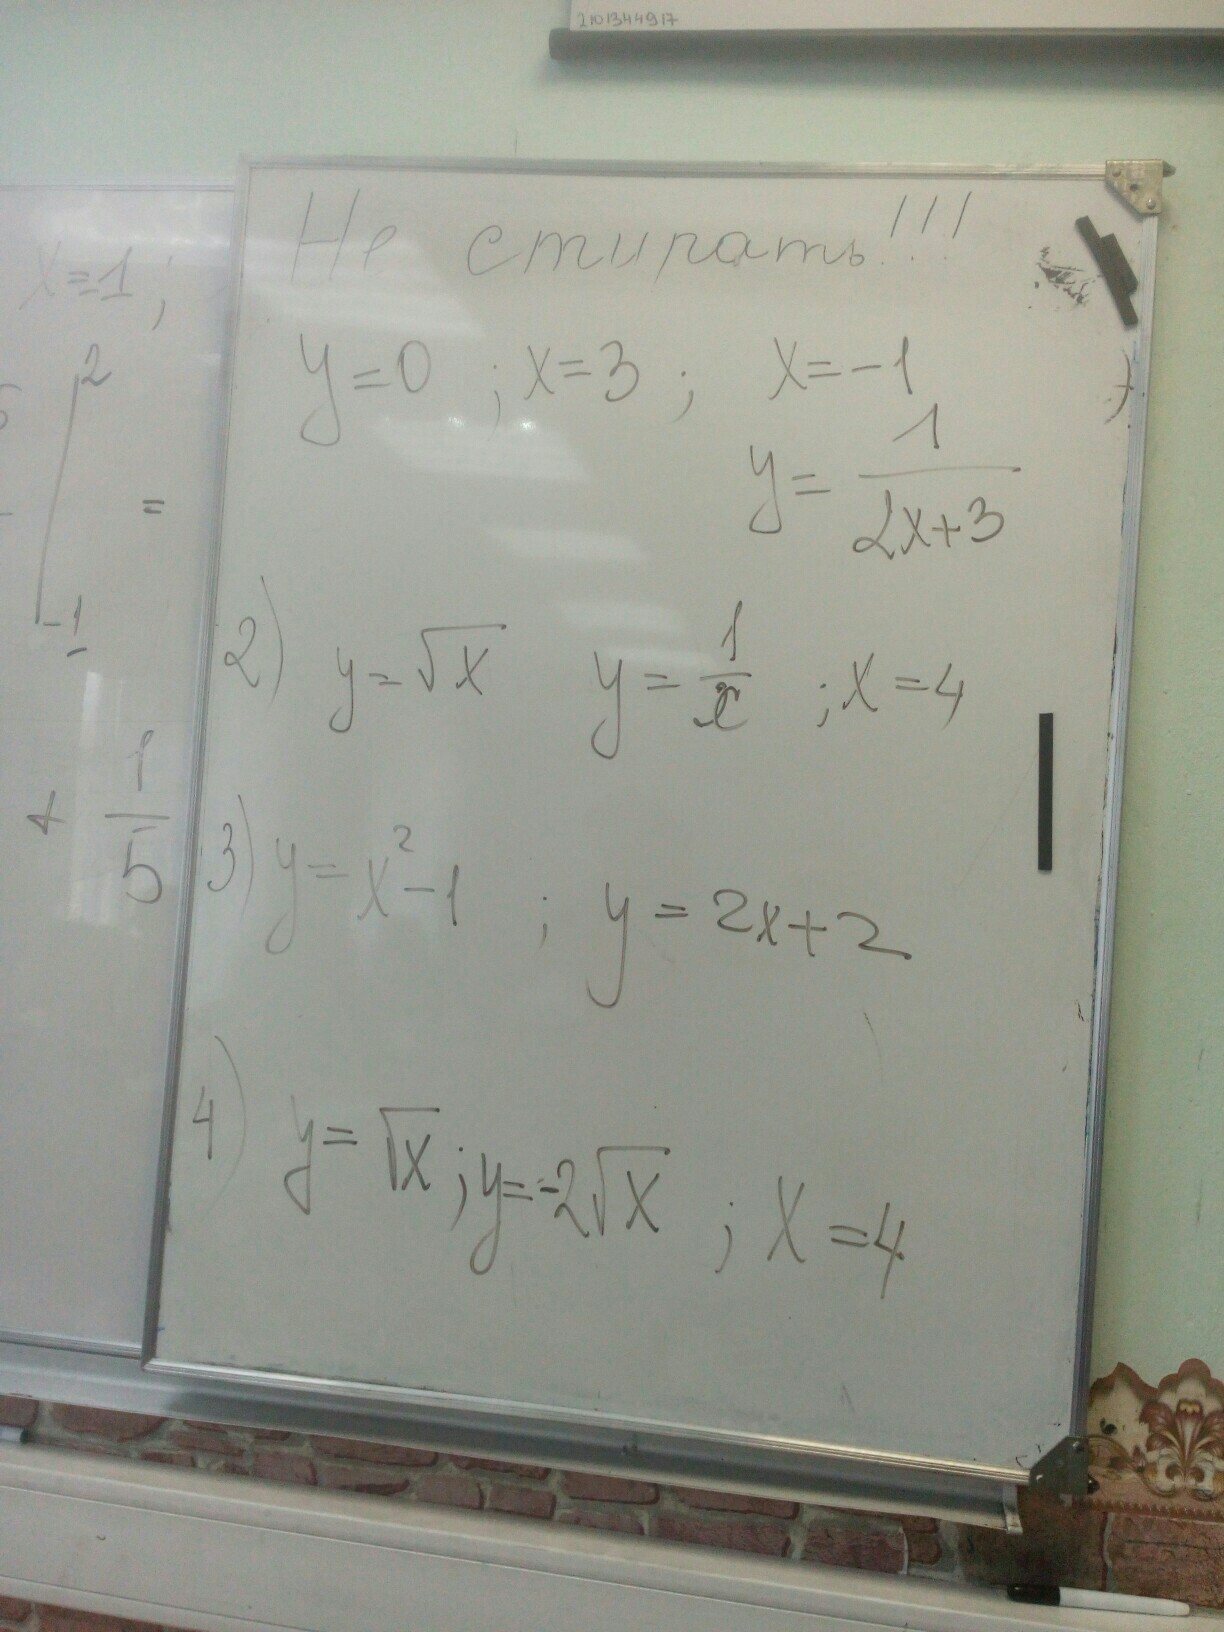 2101344917
Не стирать!!!
y=0 ; x=3 ; x=-1
y = 1/(2x+3)
2) y=√x y = 1/x ; x=4
3) y = x²-1 ; y = 2x+2
4) y = √x ; y = -2√x ; x = 4
x=1 ;
2
=
-1
+ 1/5